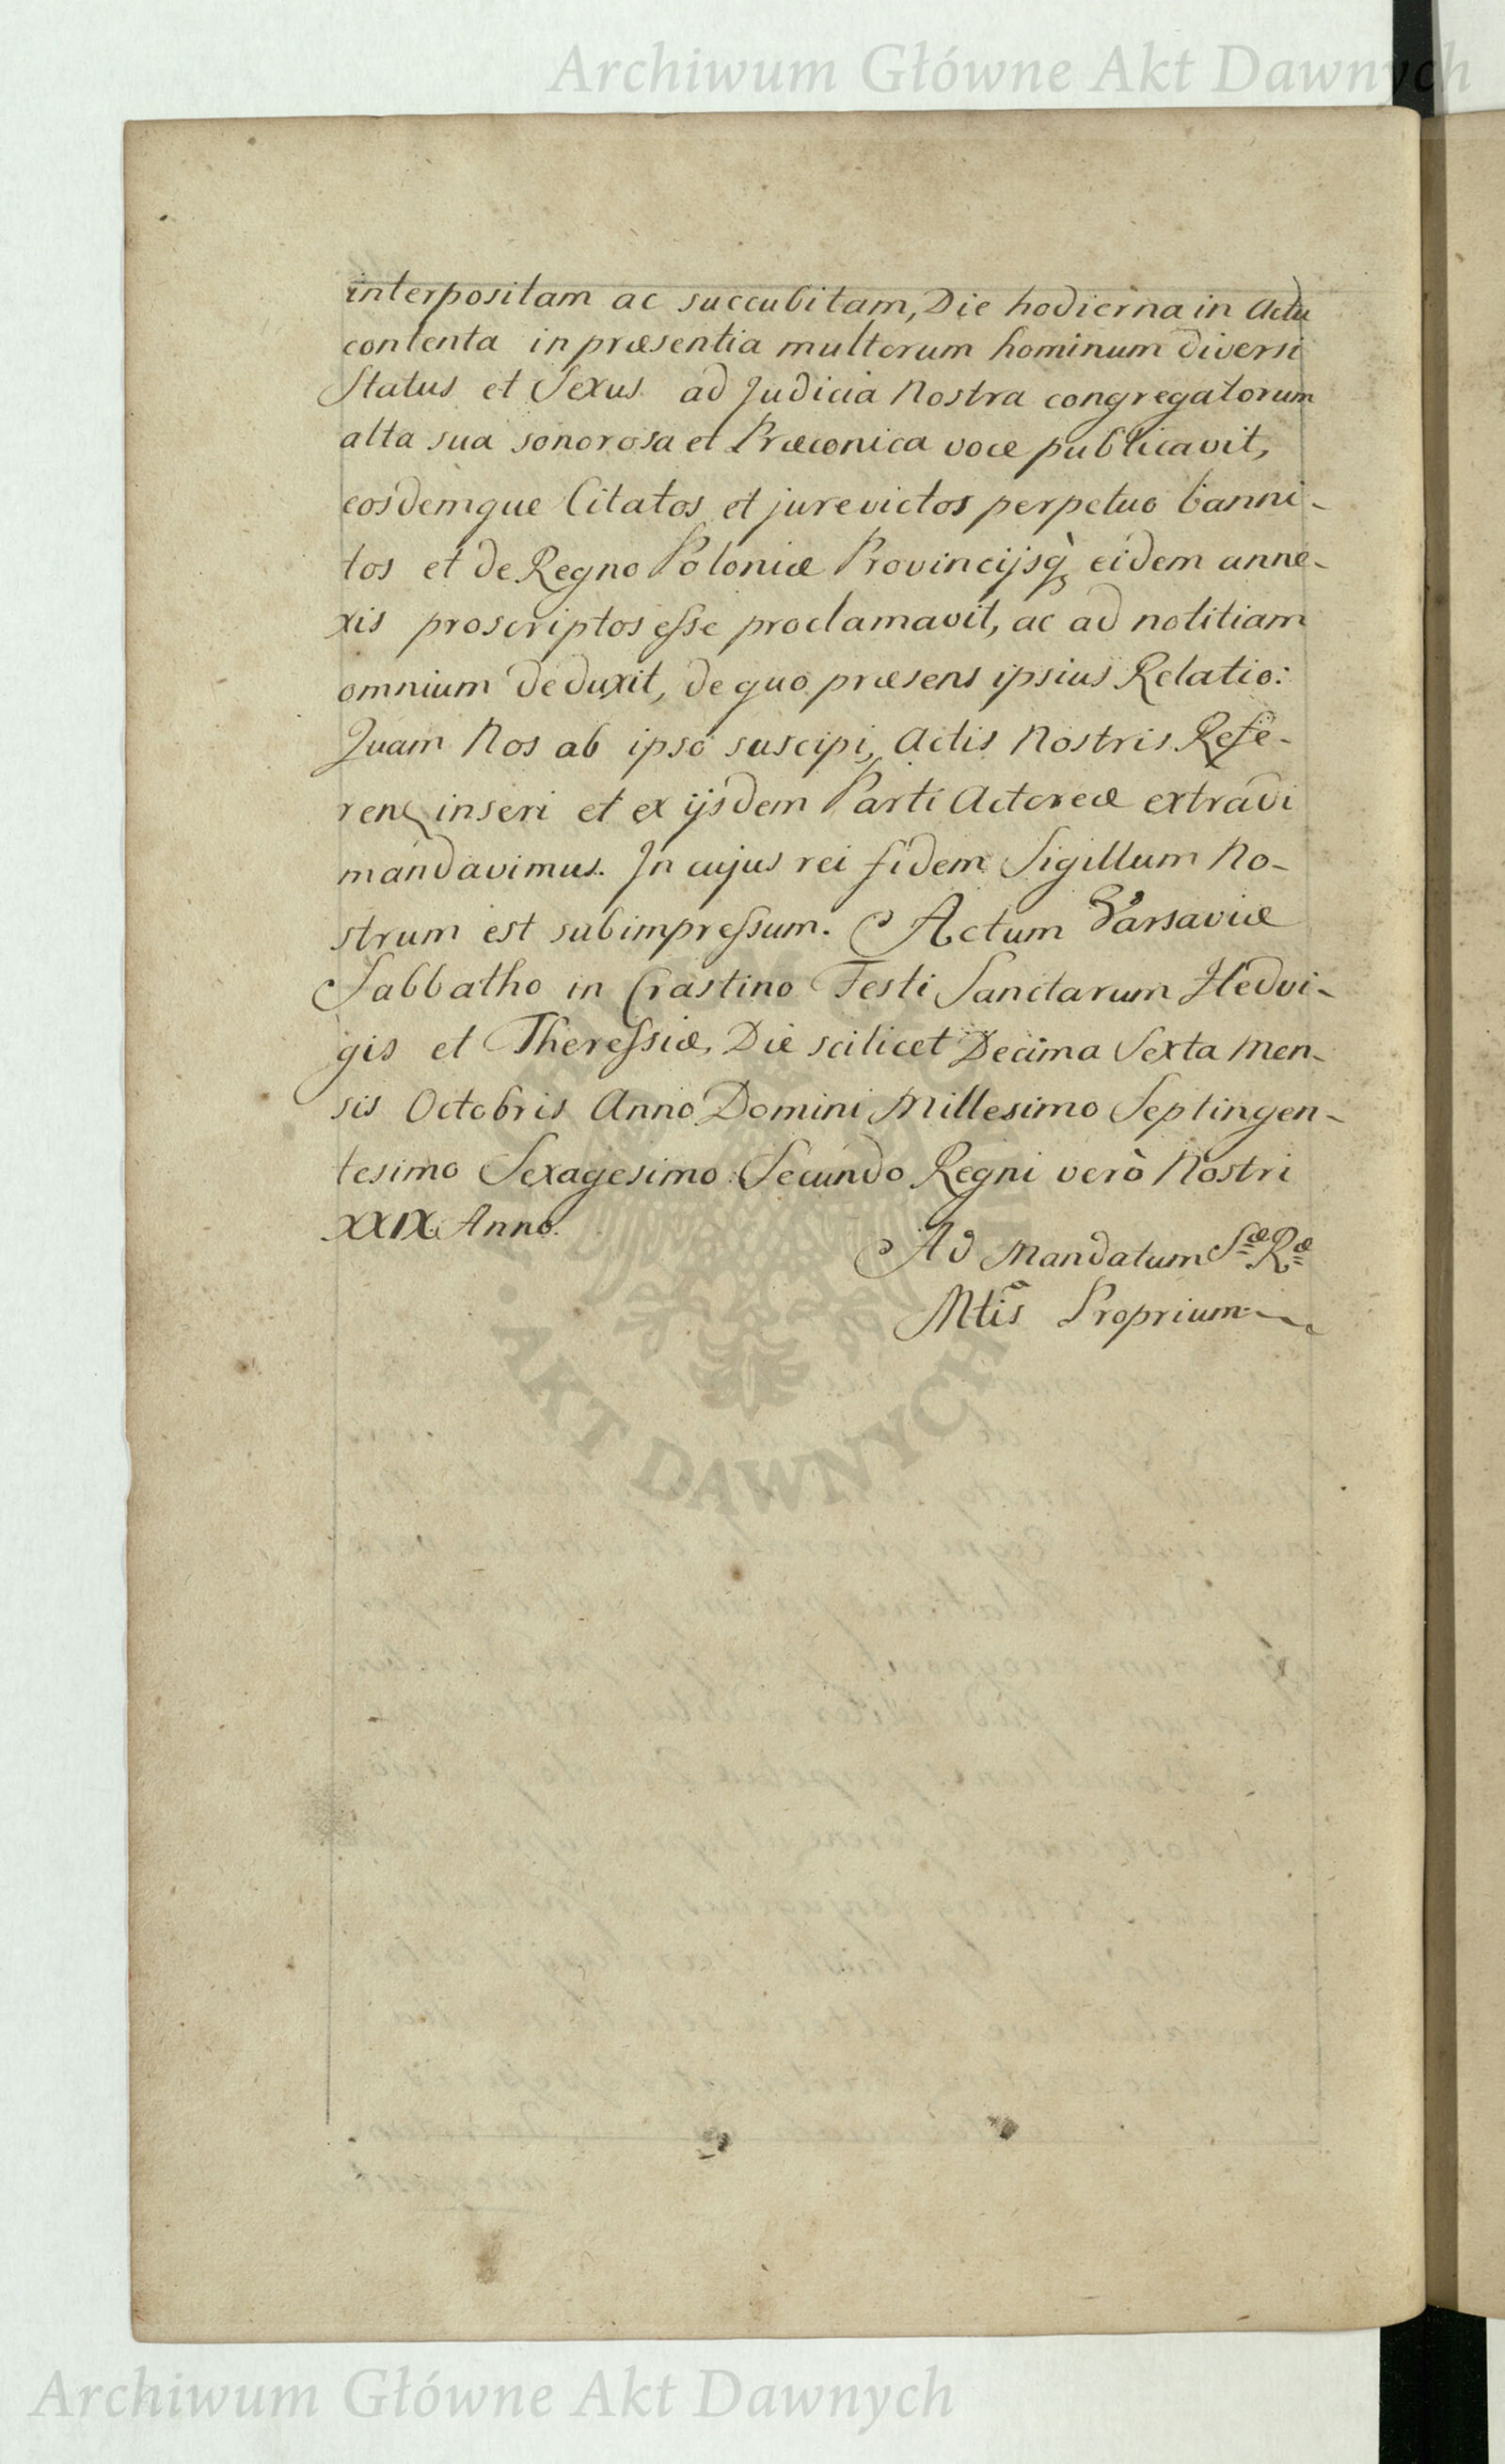 Archiwum Główne Akt Dawnych
interpositam ac succubitam, Die hodierna in Actu
contenta in præsentia multorum hominum diversi
Status et Sexus ad Judicia Nostra congregatorum
alta sua sonorosa et Præconica voce publicavit,
eosdemque Citatos et jurevictos perpetuo banni-
tos et de Regno Poloniæ Provincijsq̀ eidem anne-
xis proscriptos esse proclamavit, ac ad notitiam
omnium deduxit, de quo præsens ipsius Relatio:
Quam Nos ab ipso suscipi, Actis Nostris Refe-
ren inseri et ex ijsdem Parti Actoreæ extradi
mandavimus. In cujus rei fidem Sigillum No-
strum est subimpressum. Actum Varsaviæ
Sabbatho in Crastino Festi Sanctarum Hedvi-
gis et Theressiæ, Die scilicet Decima Sexta Men-
sis Octobris Anno Domini Millesimo Septingen-
tesimo Sexagesimo Secundo Regni verò Nostri
XXIX. Anno.
Ad Mandatum Sæ Ræ
Mtis Proprium
AKT DAWNYCH
Archiwum Główne Akt Dawnych